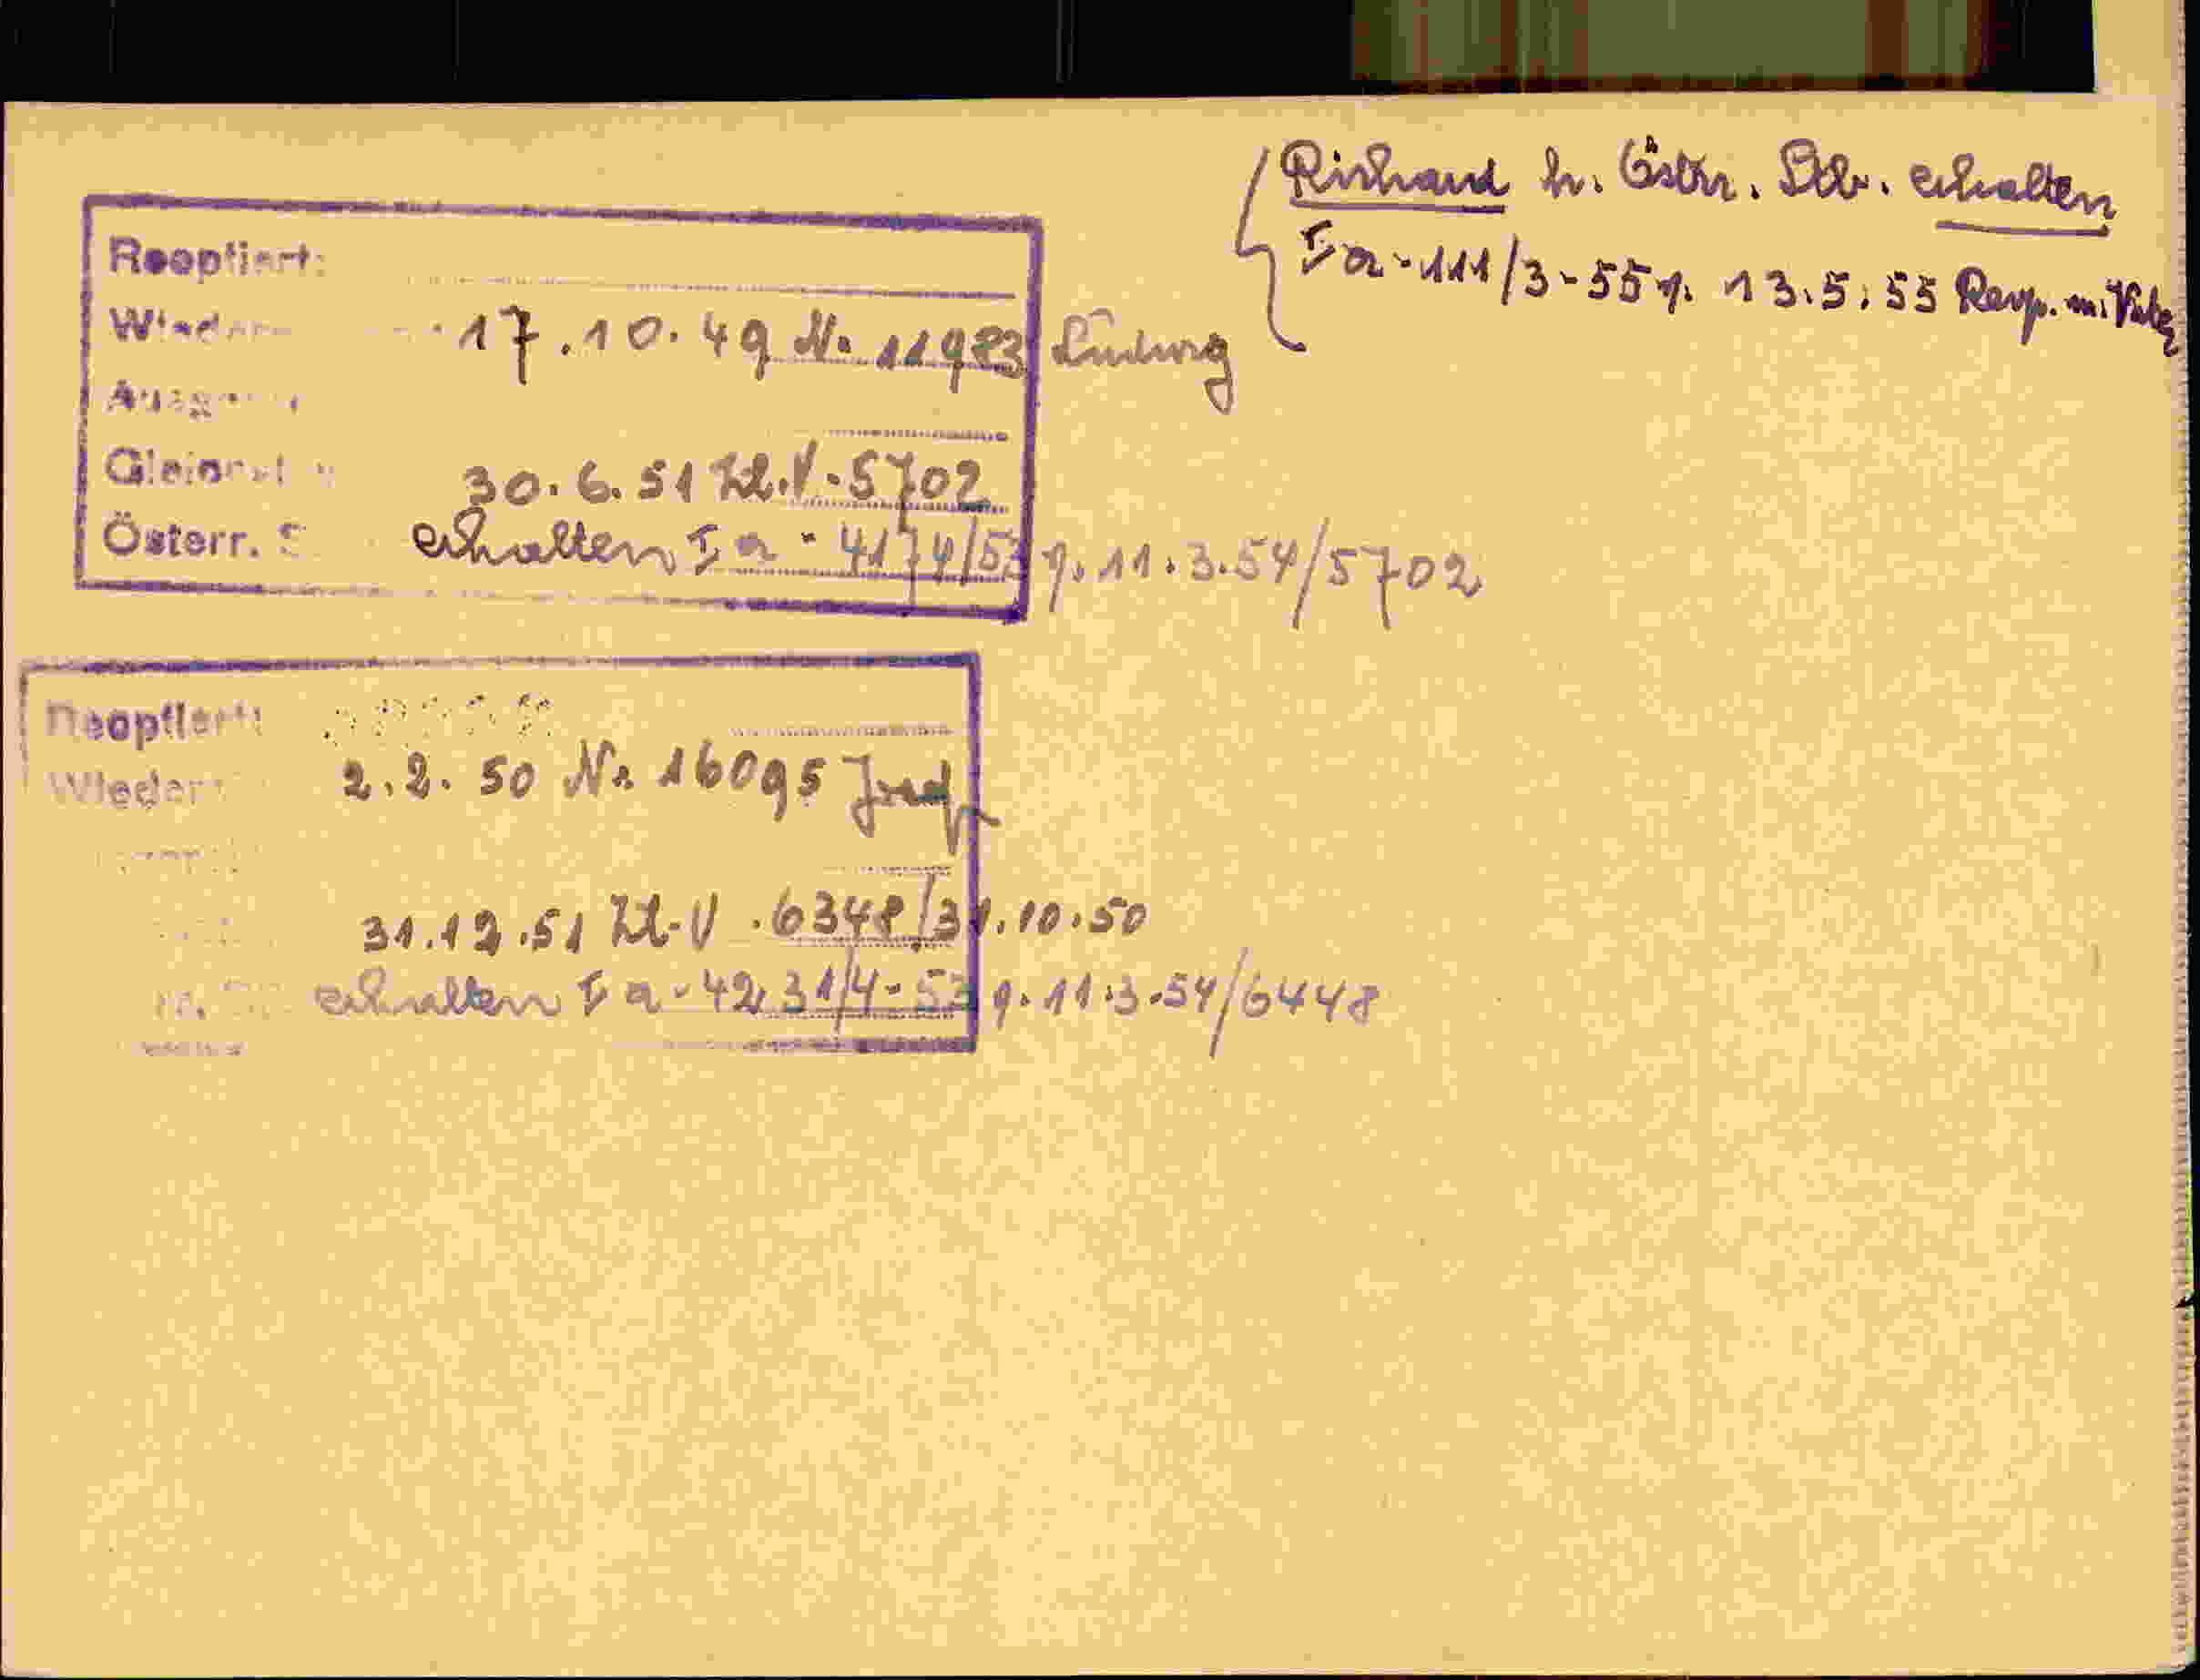 Richard h. Östr. Stb. erhalten
Ia-111/3-55 v. 13.5.55 Resp. m. Vater
Reoptiert:
17.10.49 Nr. 11983 Ludwig
30.6.51 Zl. V-5702
Österr. S erhalten Ia-4174/53 v. 11.3.54/5702
Reoptiert:
Wieder 2.2.50 Nr. 16095 Josef
31.12.51 Zl. V. 6348/31.10.50
erhalten Ia-4231/4-53 v. 11.3.54/6448